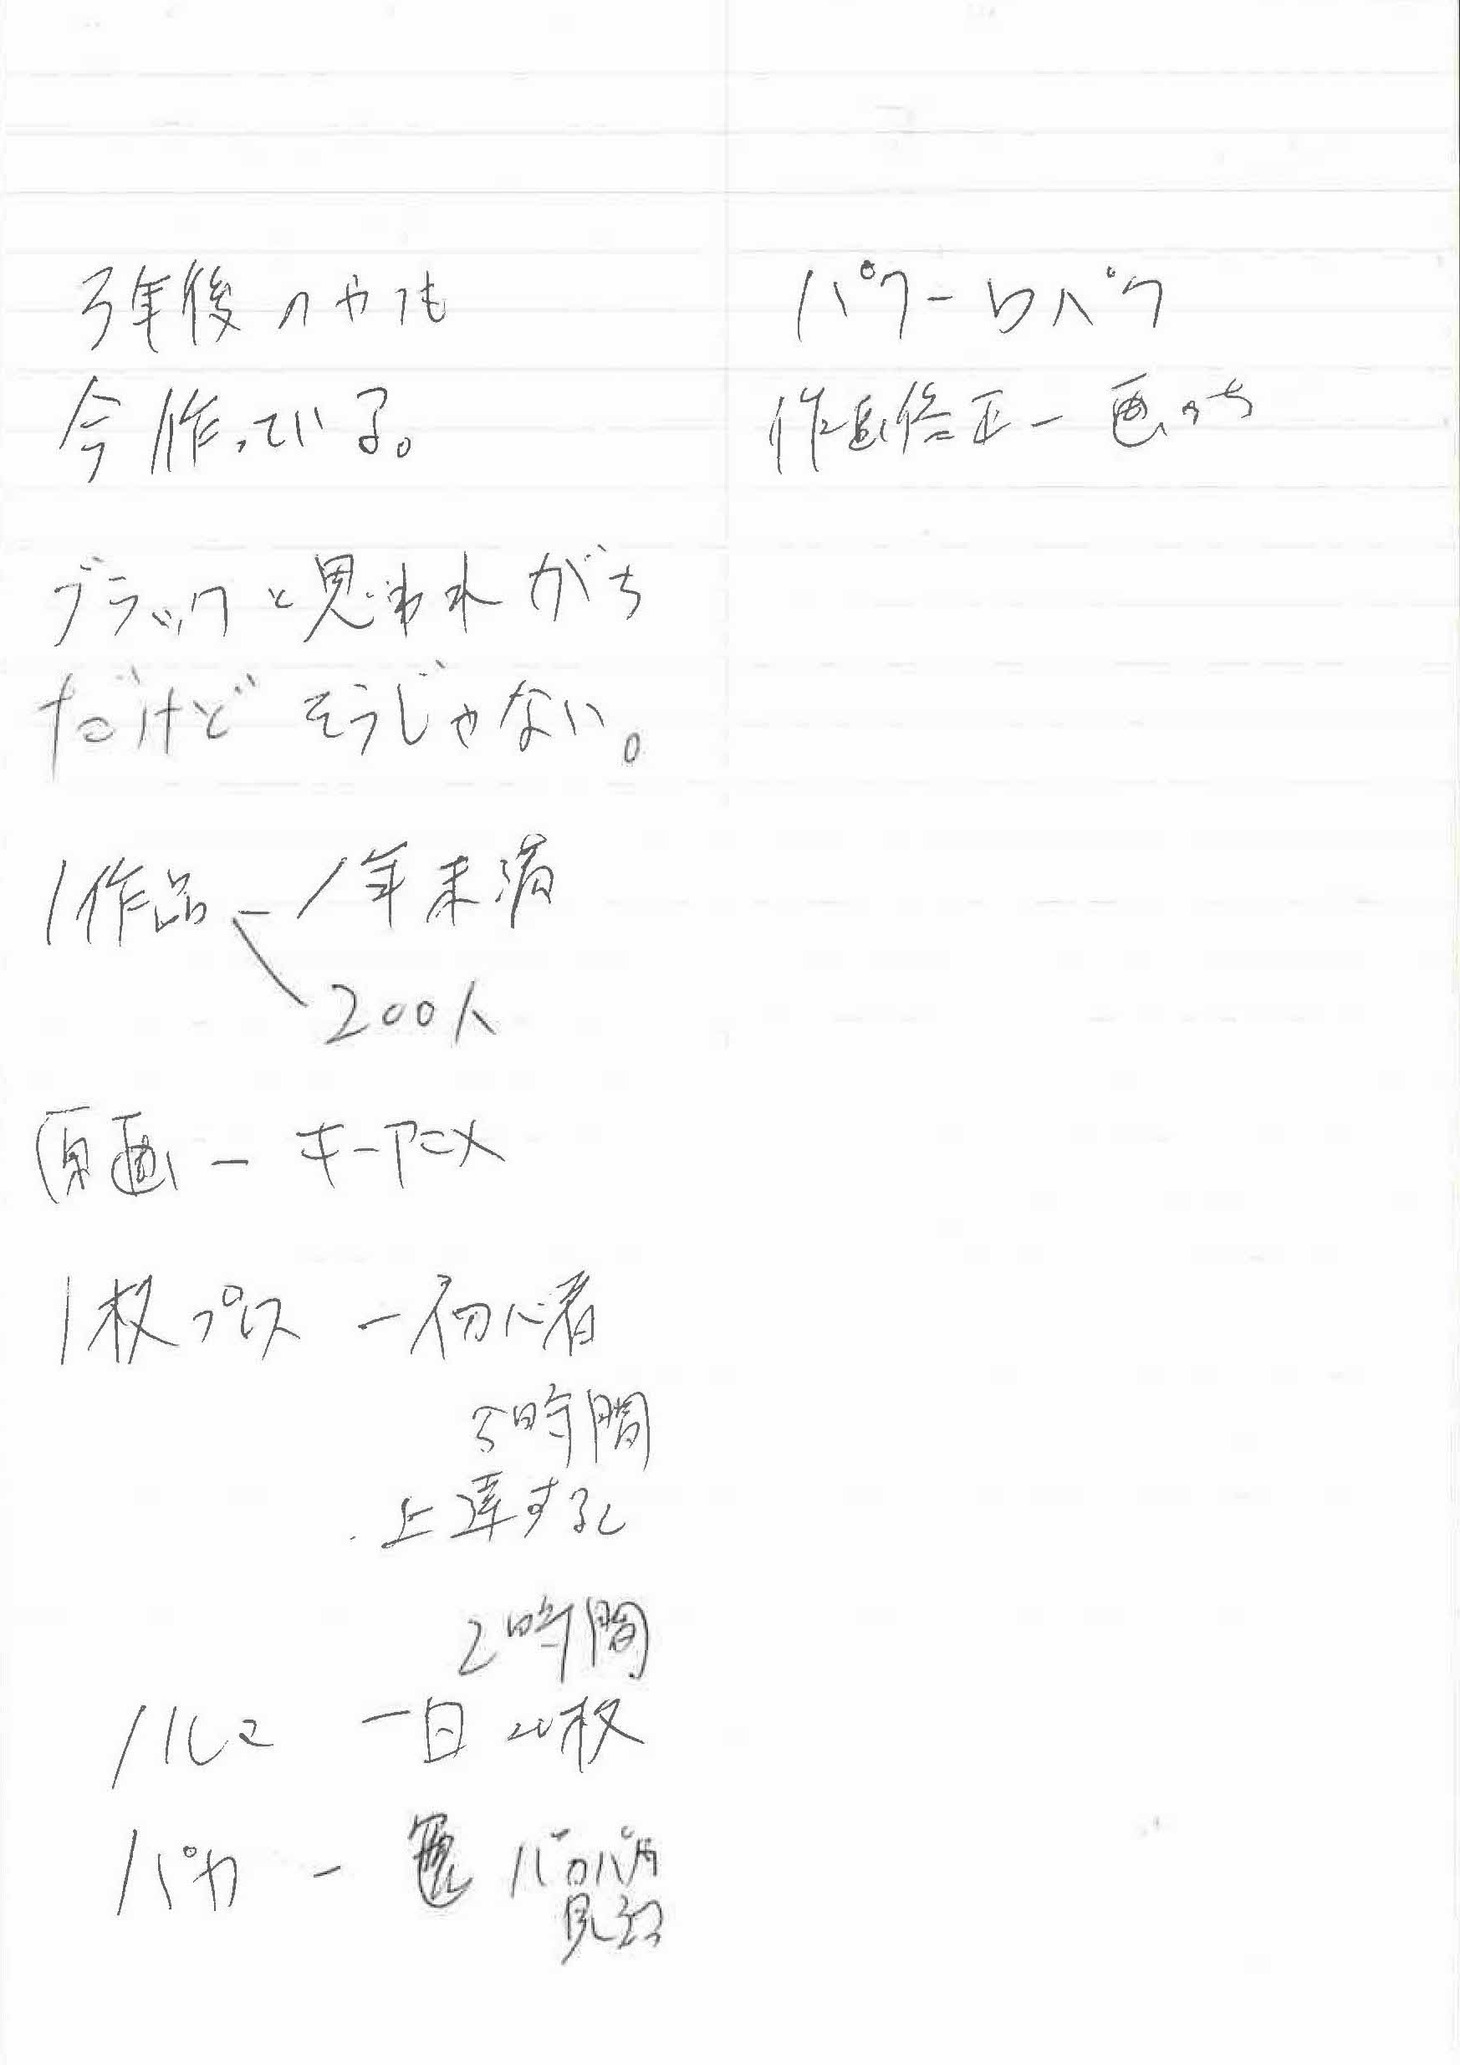 3年後のやつも
今作っている。
ブラックと思われがち
だけどそうじゃない。
1作品 - 1年未満
200人
原画 - キーアニメ
1枚プロス - 初心者
5時間
上達すると
2時間
ノルマ 一日20枚
パカ - パカパカ
見える
パクーロパク
作画修正 - 画のち